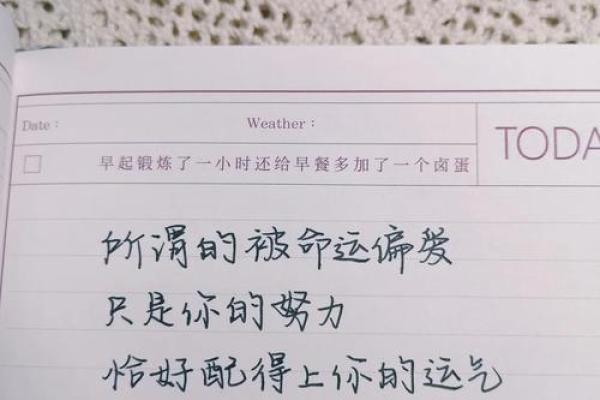 Date：
Weather：
TODA
早起锻炼了一小时还给早餐多加了一个卤蛋
所谓的被命运偏爱
只是你的努力
恰好配得上你的运气